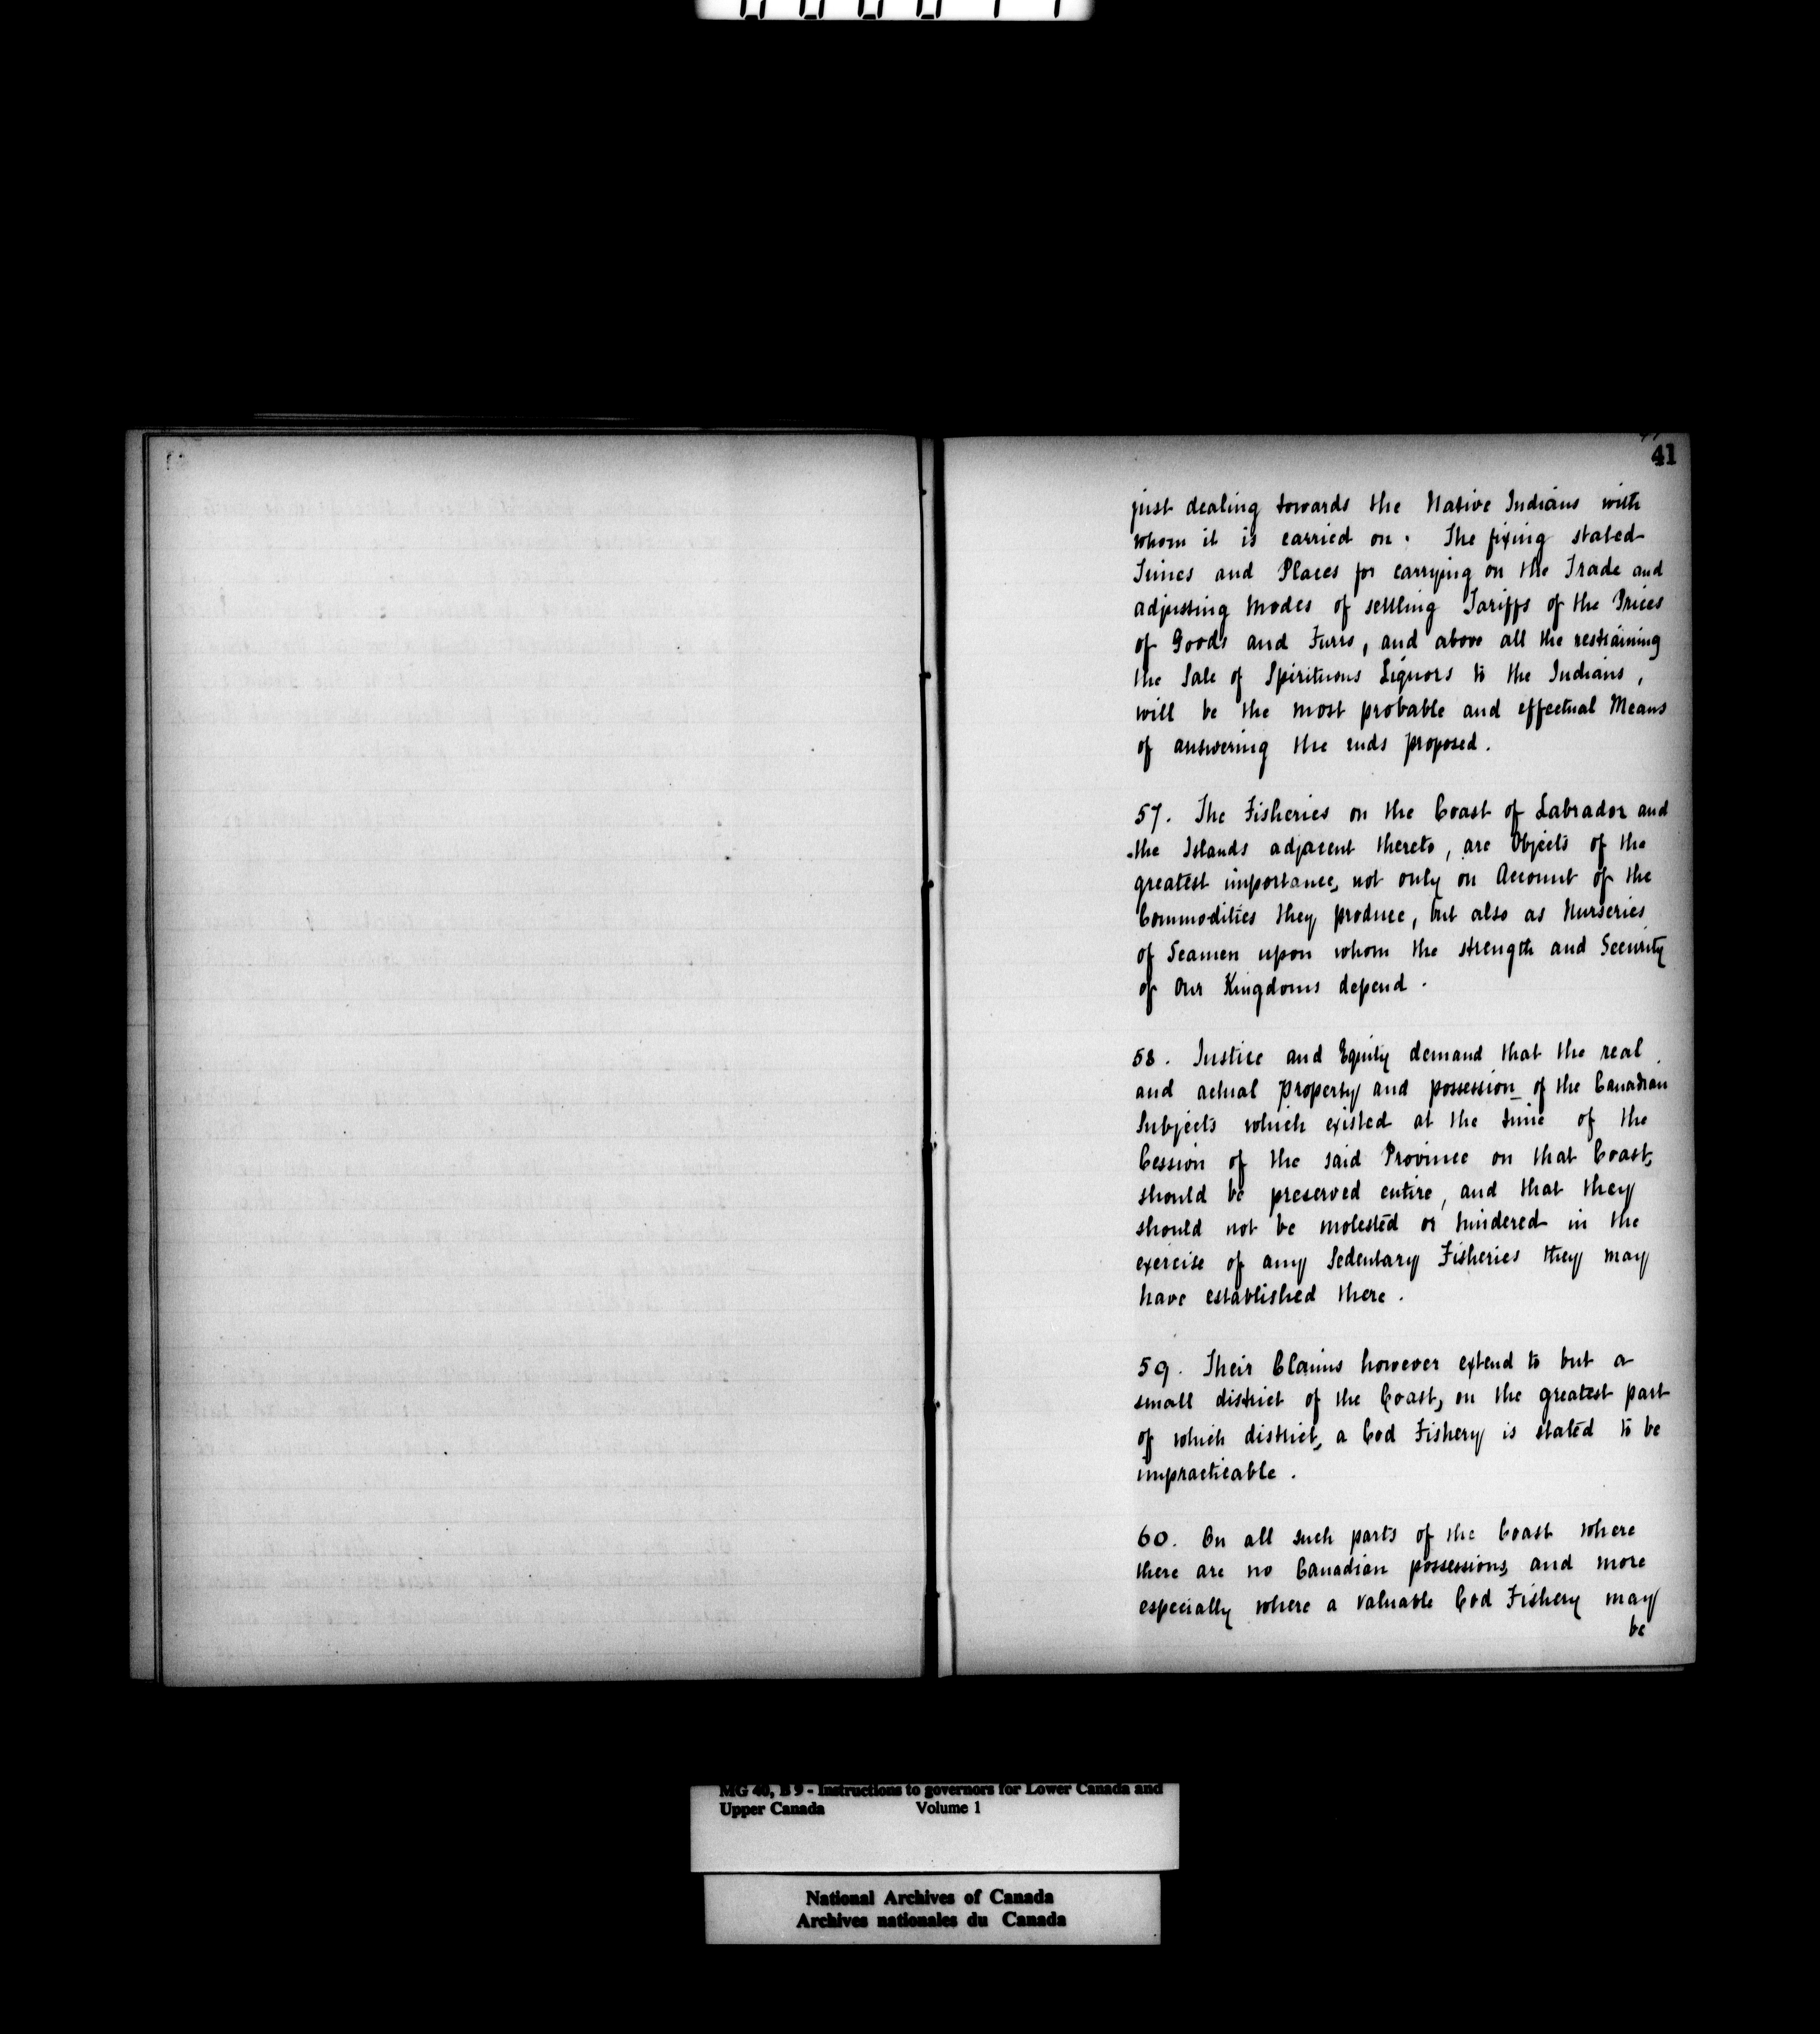 41
just dealing towards the Native Indians with
whom it is carried on. The fixing stated
Times and Places for carrying on the Trade and
adjusting Modes of settling Tariffs of the Prices
of Goods and Furrs, and above all the restraining
the Sale of Spirituous Liquors to the Indians,
will be the most probable and effectual Means
of answering the ends proposed.
57. The Fisheries on the Coast of Labrador and
the Islands adjacent thereto, are Objects of the
greatest importance, not only on Account of the
Commodities they produce, but also as Nurseries
of Seamen upon whom the strength and Security
of Our Kingdoms depend.
58. Justice and Equity demand that the real
and actual Property and possession of the Canadian
Subjects which existed at the time of the
Cession of the said Province on that Coast,
should be preserved entire, and that they
should not be molested or hindered in the
exercise of any Sedentary Fisheries they may
have established there.
59. Their Claims however extend to but a
small district of the Coast, on the greatest part
of which district, a Cod Fishery is stated to be
impracticable.
60. On all such parts of the Coast where
there are no Canadian possessions, and more
especially where a valuable Cod Fishery may
be
MG 40, B 9 - Instructions to governors for Lower Canada and
Upper Canada Volume 1
National Archives of Canada
Archives nationales du Canada